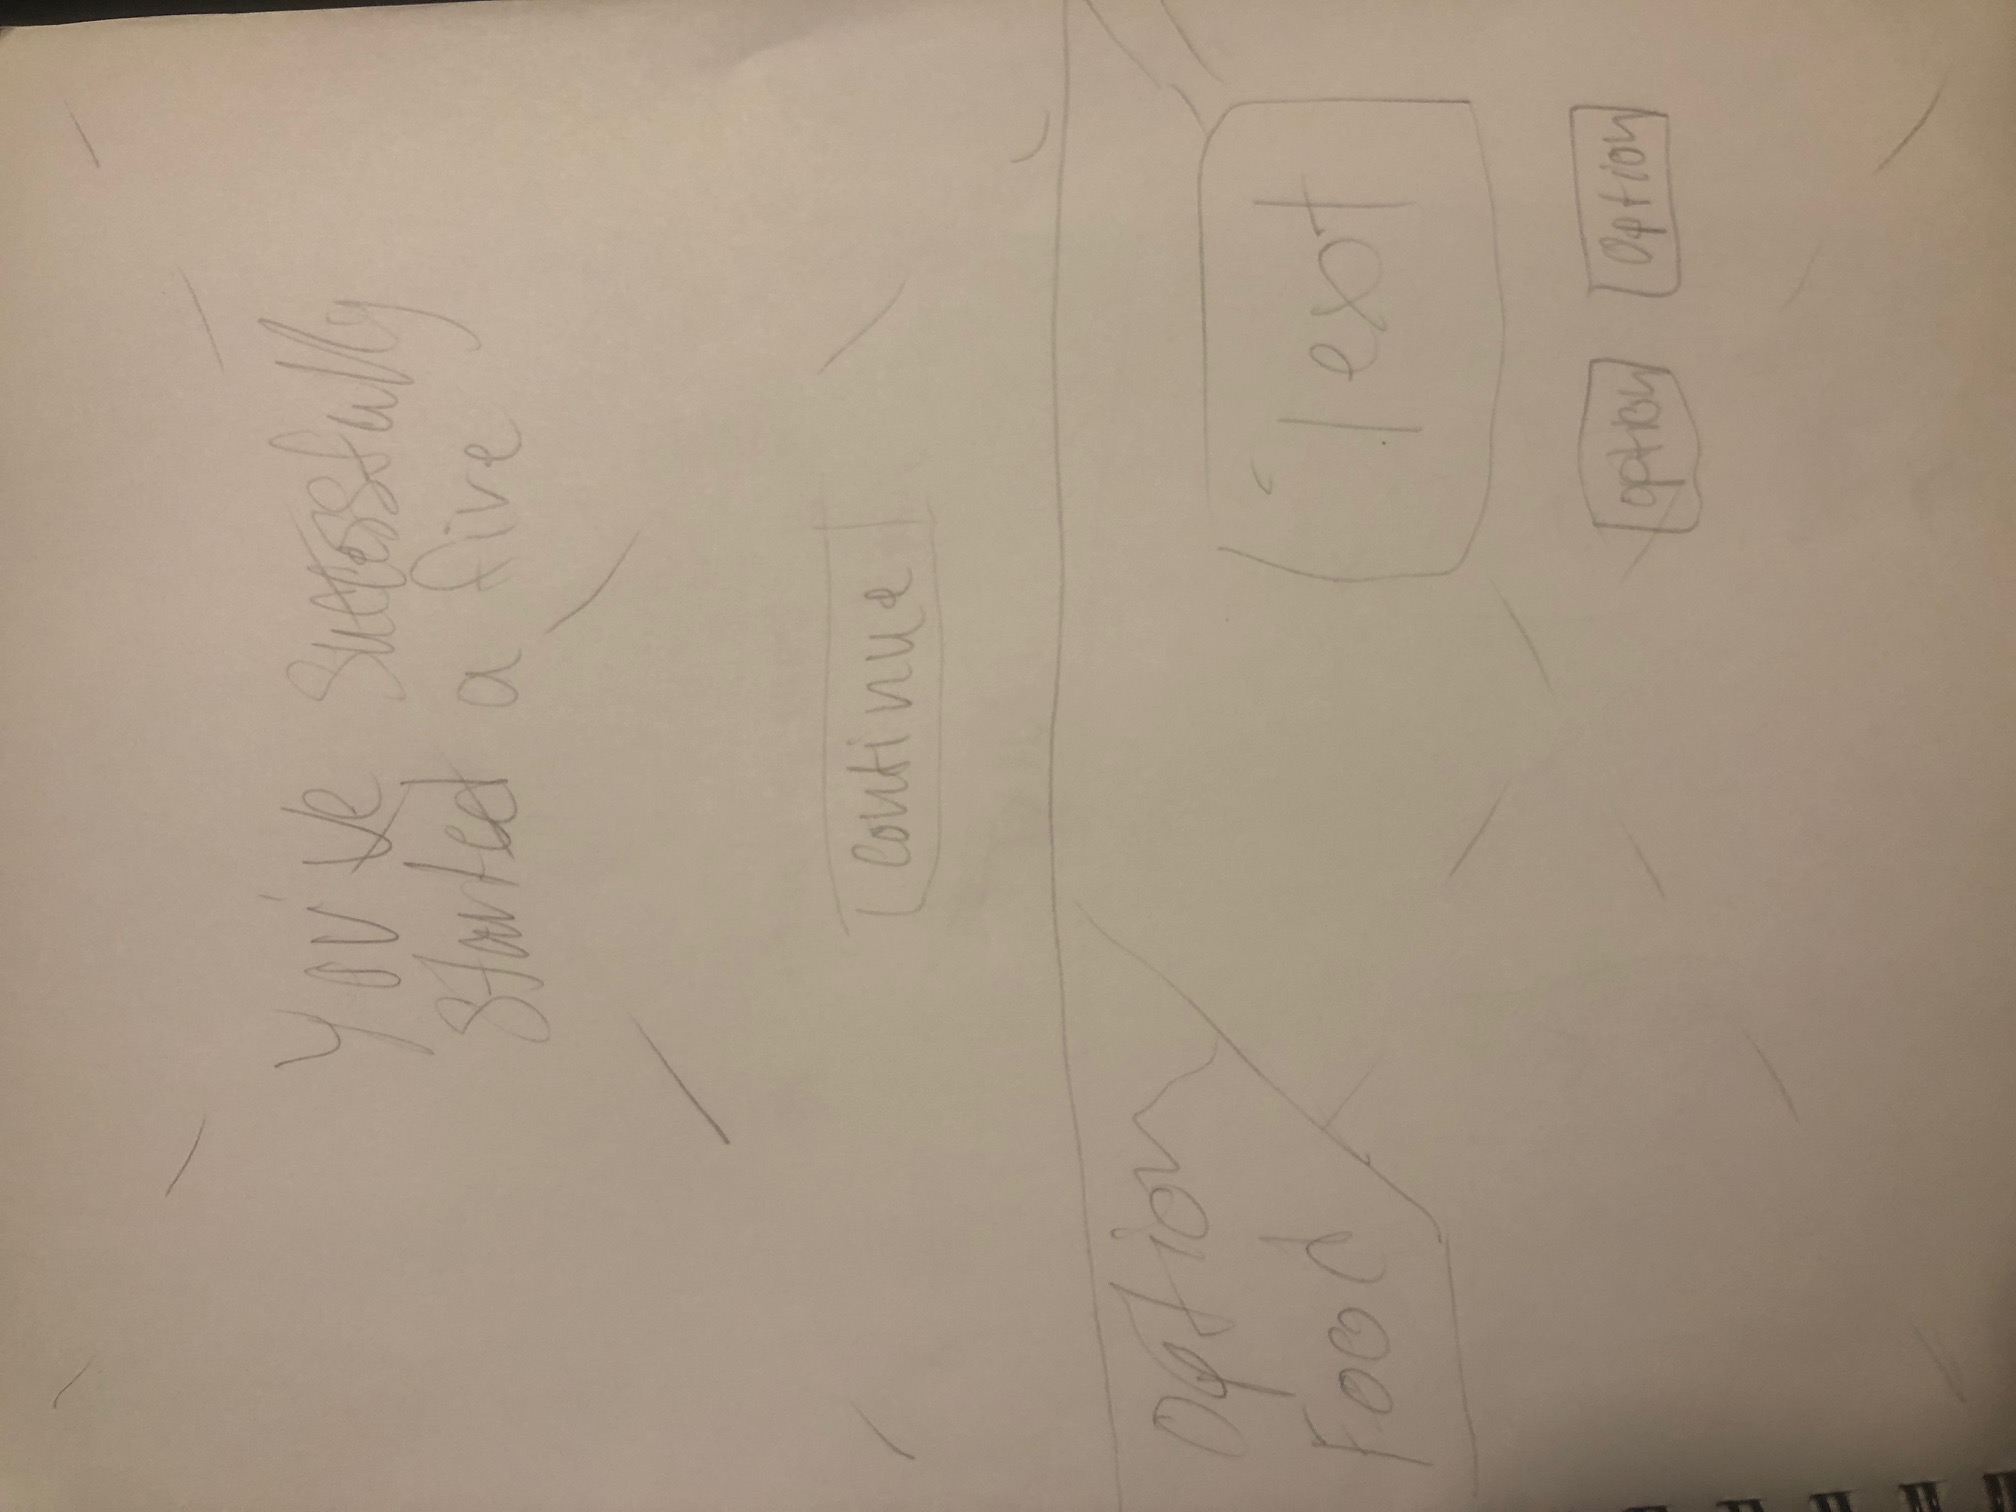 You've successfully
started a fire
continue
Option
Food
Text
option
Option